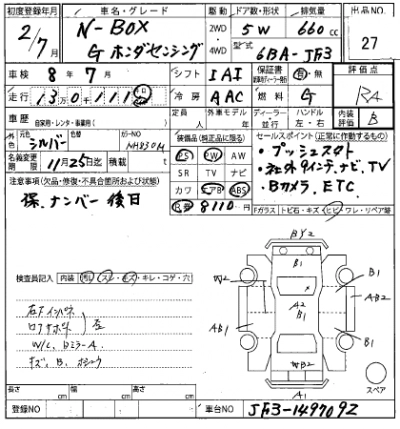 初度登録年月 車名・グレード 駆動 ドア数・形状 排気量 出品NO.
2/7月 N-BOX 2WD 4WD 5W 660cc 27
G ホンダセンシング 型式 6BA-JF3
車検 8年7月 シフト IAT 保証書 有・無 評価点
走行 冷房 AAC 燃料 G RA
車歴 自家用・レンタ・事業用( ) 定員 人 外車モデル 年 ディーラー 並行 ハンドル 左・右 内装評価 B
外色 元色 シルバー カラーNO NH830M 装備品(純正品に限る) セールスポイント(正常に作動するもの)
名義変更期限 11月25日迄 積載 t PS PW AW ・プッシュスタート
注意事項(欠品・修復・不具合箇所および状態) SR TV ナビ ・社外9インチナビ、TV
保、ナンバー後日 カワ エアB ABS ・Bカメラ ETC
8110円
Fガラス トビ石・キズ・ヒビ・ワレ・リペア跡
検査員記入 内装 汚レ・スレ・キズ・キレ・コゲ・穴
BY2
B1
A2
B1
AB2
AB1
B1
A1
キズ、B、
スペア
長さ cm 幅 cm 高さ cm
登録NO 車台NO JF3-1497092